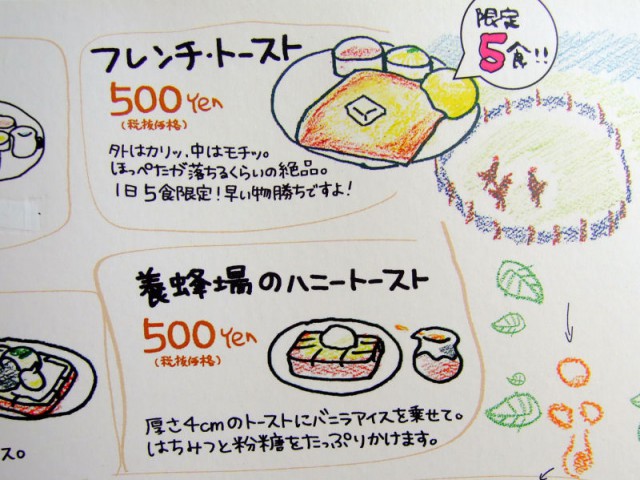 限定
5食!!
フレンチ・トースト
500 Yen
(税抜価格)
外はカリッ、中はモチッ。
ほっぺたが落ちるくらいの絶品。
1日5食限定!早い物勝ちですよ!
養蜂場のハニートースト
500 Yen
(税抜価格)
厚さ4cmのトーストにバニラアイスを乗せて。
はちみつと粉糖をたっぷりかけます。
ス。